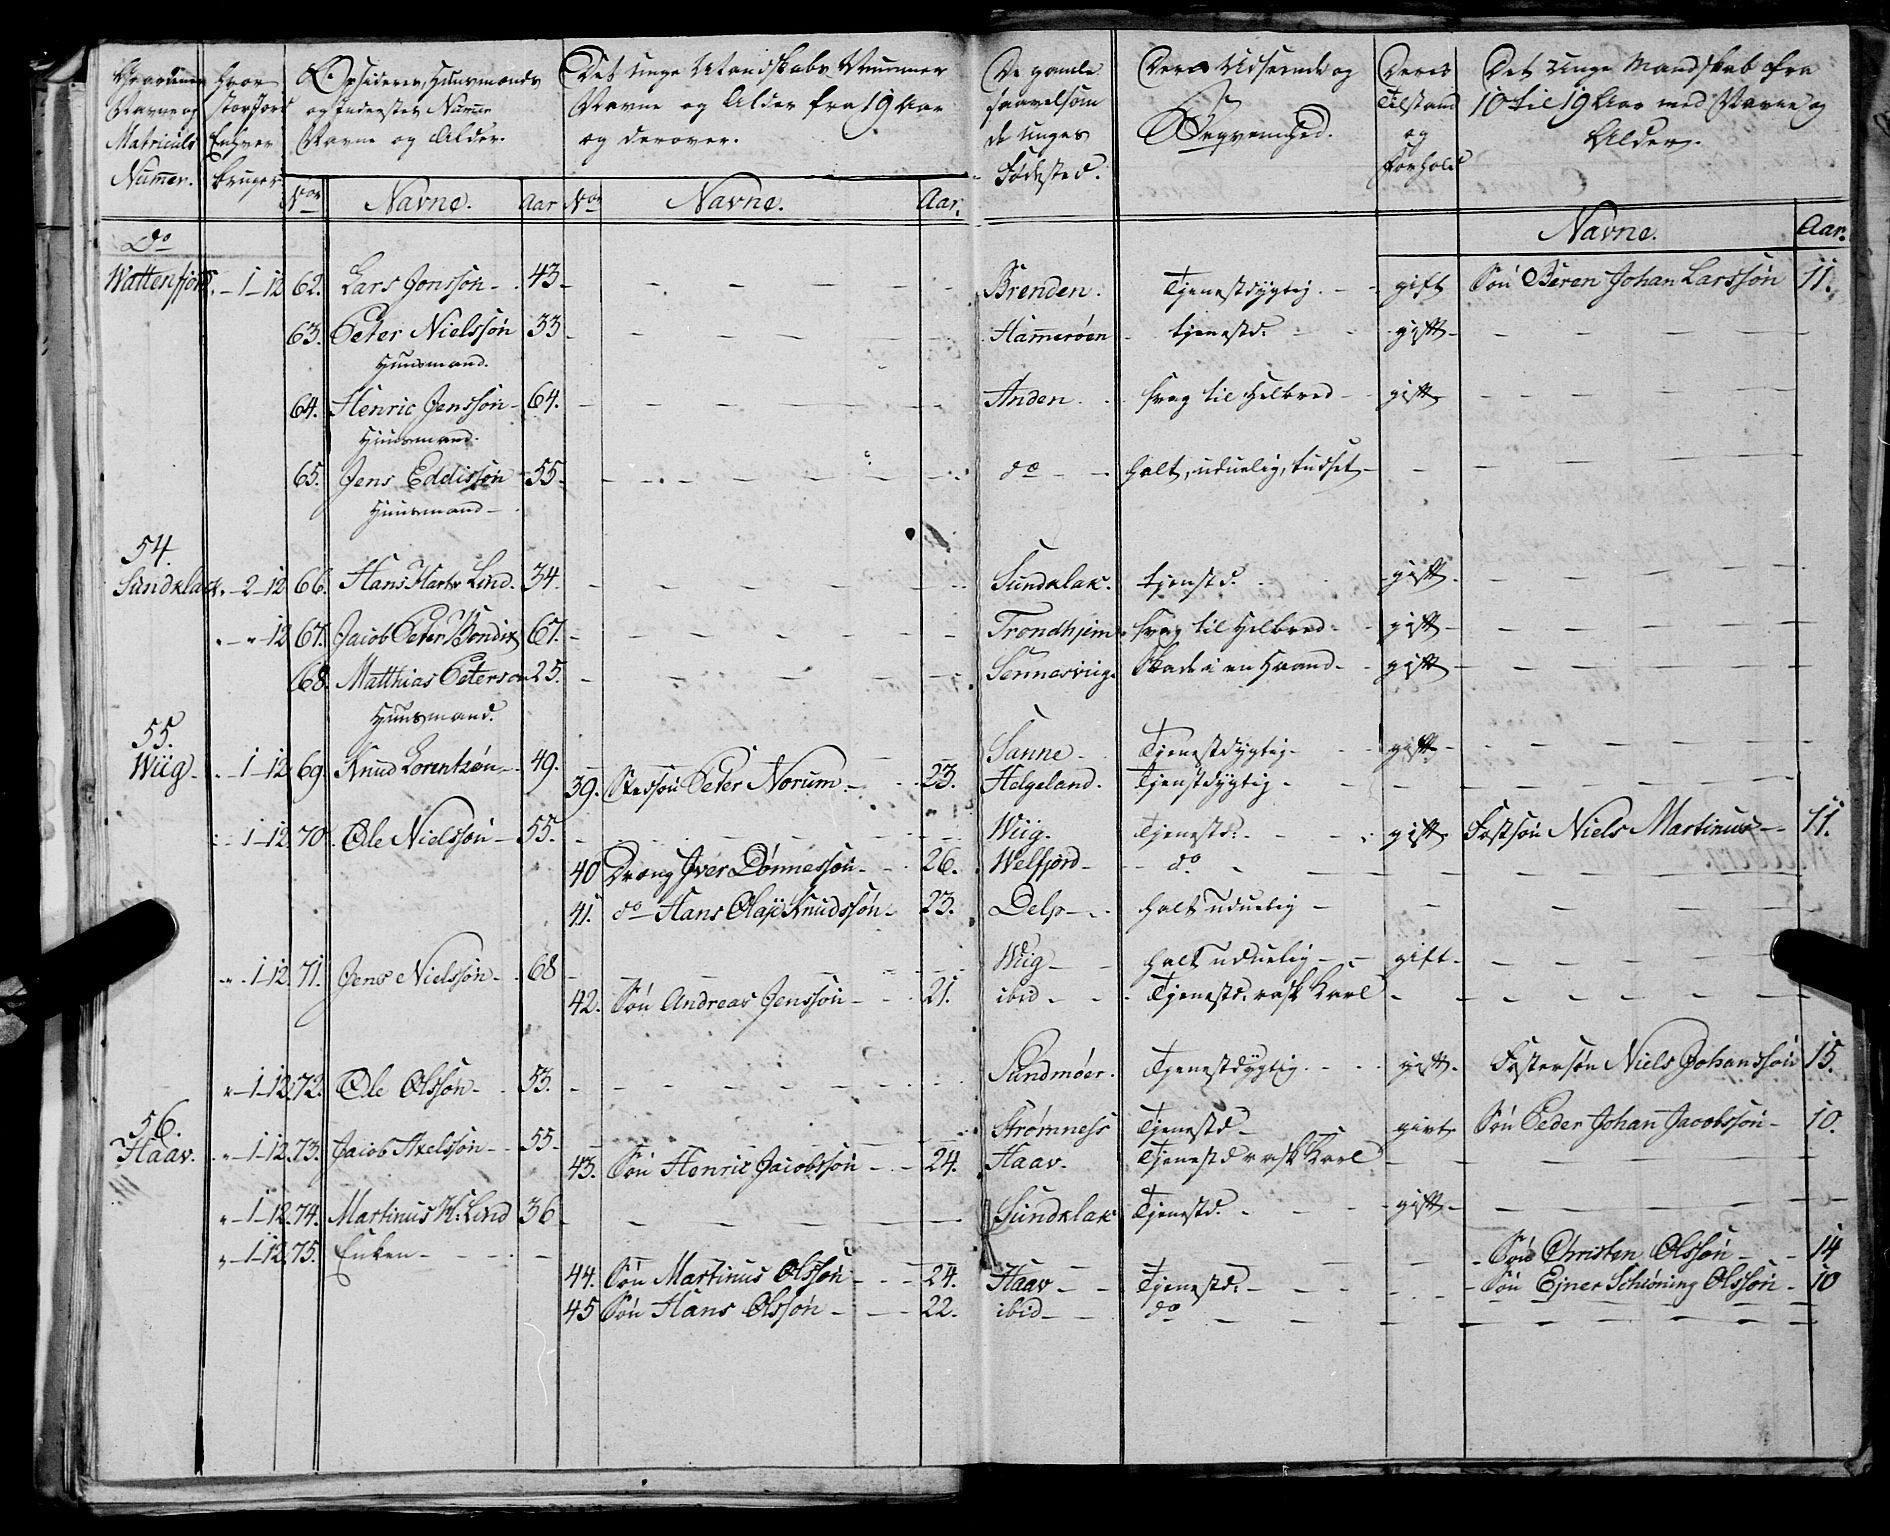 Gaardenes Navne og Matriculs Numer. | Hvor stor Jord Enhver bruger | Opsiderers, Huusmænds og Inderstes Numr Navne og Alder. | Det unge Mandskabs Nummer Navne og Alder fra 19 Aar og derover. | De gamle saavelsom de Unges Fødested. | Deres Udseende og Beqvemhed. | Deres Tilstand og Forhold | Det Unge Mandskab fra 10 til 19 Aar med Navne og Alder.
Nor | Navne. | Aar | Nor | Navne. | Aar. | Navne. | Aar.
Do
Wattenfjord. - 1 - 12 | 62. | Lars Jonsson - | 43 - | Brenden. | Tjenestdygtig. - | gift | Søn Beren Johan Larssøn | 11.
63. | Peter Nielssøn | 33 - | Hamerøen - | tjenestd. - | gift -
Huusmand.
64. | Henric Jenssøn - | 64. | Anden. | svag til Helbred - | gift
Huusmand.
65. | Jens Eddissøn - | 55 - | do - | halt, uduelig, Tudset -
Huusmand -
54.
Sundklak. - 2 - 12 | 66. | Hans Hartv. Lind. | 34. | Sundklak. | tjenstd. | gift.
" - 12 | 67. | Jacob Peter Bondix | 67. | Trondhjem | svag til Helbred - | gift -
68. | Matthias Peterson | 25. | Sennesviig. | Skade i en Haand - | gift
Huusmand.
55.
Wiig - 1 - 12 | 69. | Knud Lorentzøn - | 49. | Sanne - | Tjenestdygtig - | gift -
39. | Stedsøn Peter Norum - | 23. | Helgeland. | Tjenstdygtig -
- 1 - 12 | 70. | Ole Nielssøn - | 55. | Wiig. | Tjenestd. - | gift. | Fostsøn Niels Martinus - | 11.
40 | Dreng Iver Dønnessøn - | 26. | Welfjord - | do
41. | do Hans Olaji Knudssøn - | 23. | Delp - | halt uduelig -
" - 1 - 12. | 71. | Jens Nielssøn - | 68 | Wiig - | halt uduelig - | gift -
42. | Søn Andreas Jenssøn - | 21. | ibid - | Tjenestd. rask Karl -
" - 1 - 12. | 72. | Ole Olssøn - | 53. | Sundmøer. | Tjenestdygtig. - | gift. | Fostersøn Niels Johanssøn | 15.
56.
Haav. " - 1 - 12. | 73. | Jacob Axelssøn - | 55 - | Strømness | Tjenestd - | givt | Søn Peder Johan Jacobssøn - | 10.
43. | Søn Henric Jacobssøn - | 24. | Haav. | Tjenestd rask Karl
" - 1 - 12. | 74. | Martinus H: Lind | 36 - | Sundklak | Tjenestd. | gift -
" - 1 - 12. | 75. | Enken - | Søn Christen Olssøn - | 14
44. | Søn Martinus Olssøn - | 24. | Haav - | Tjenestd. - | Søn Ejner Schiøning Olssøn - | 10
45 | Søn Hans Olssøn - | 22. | ibid - | do